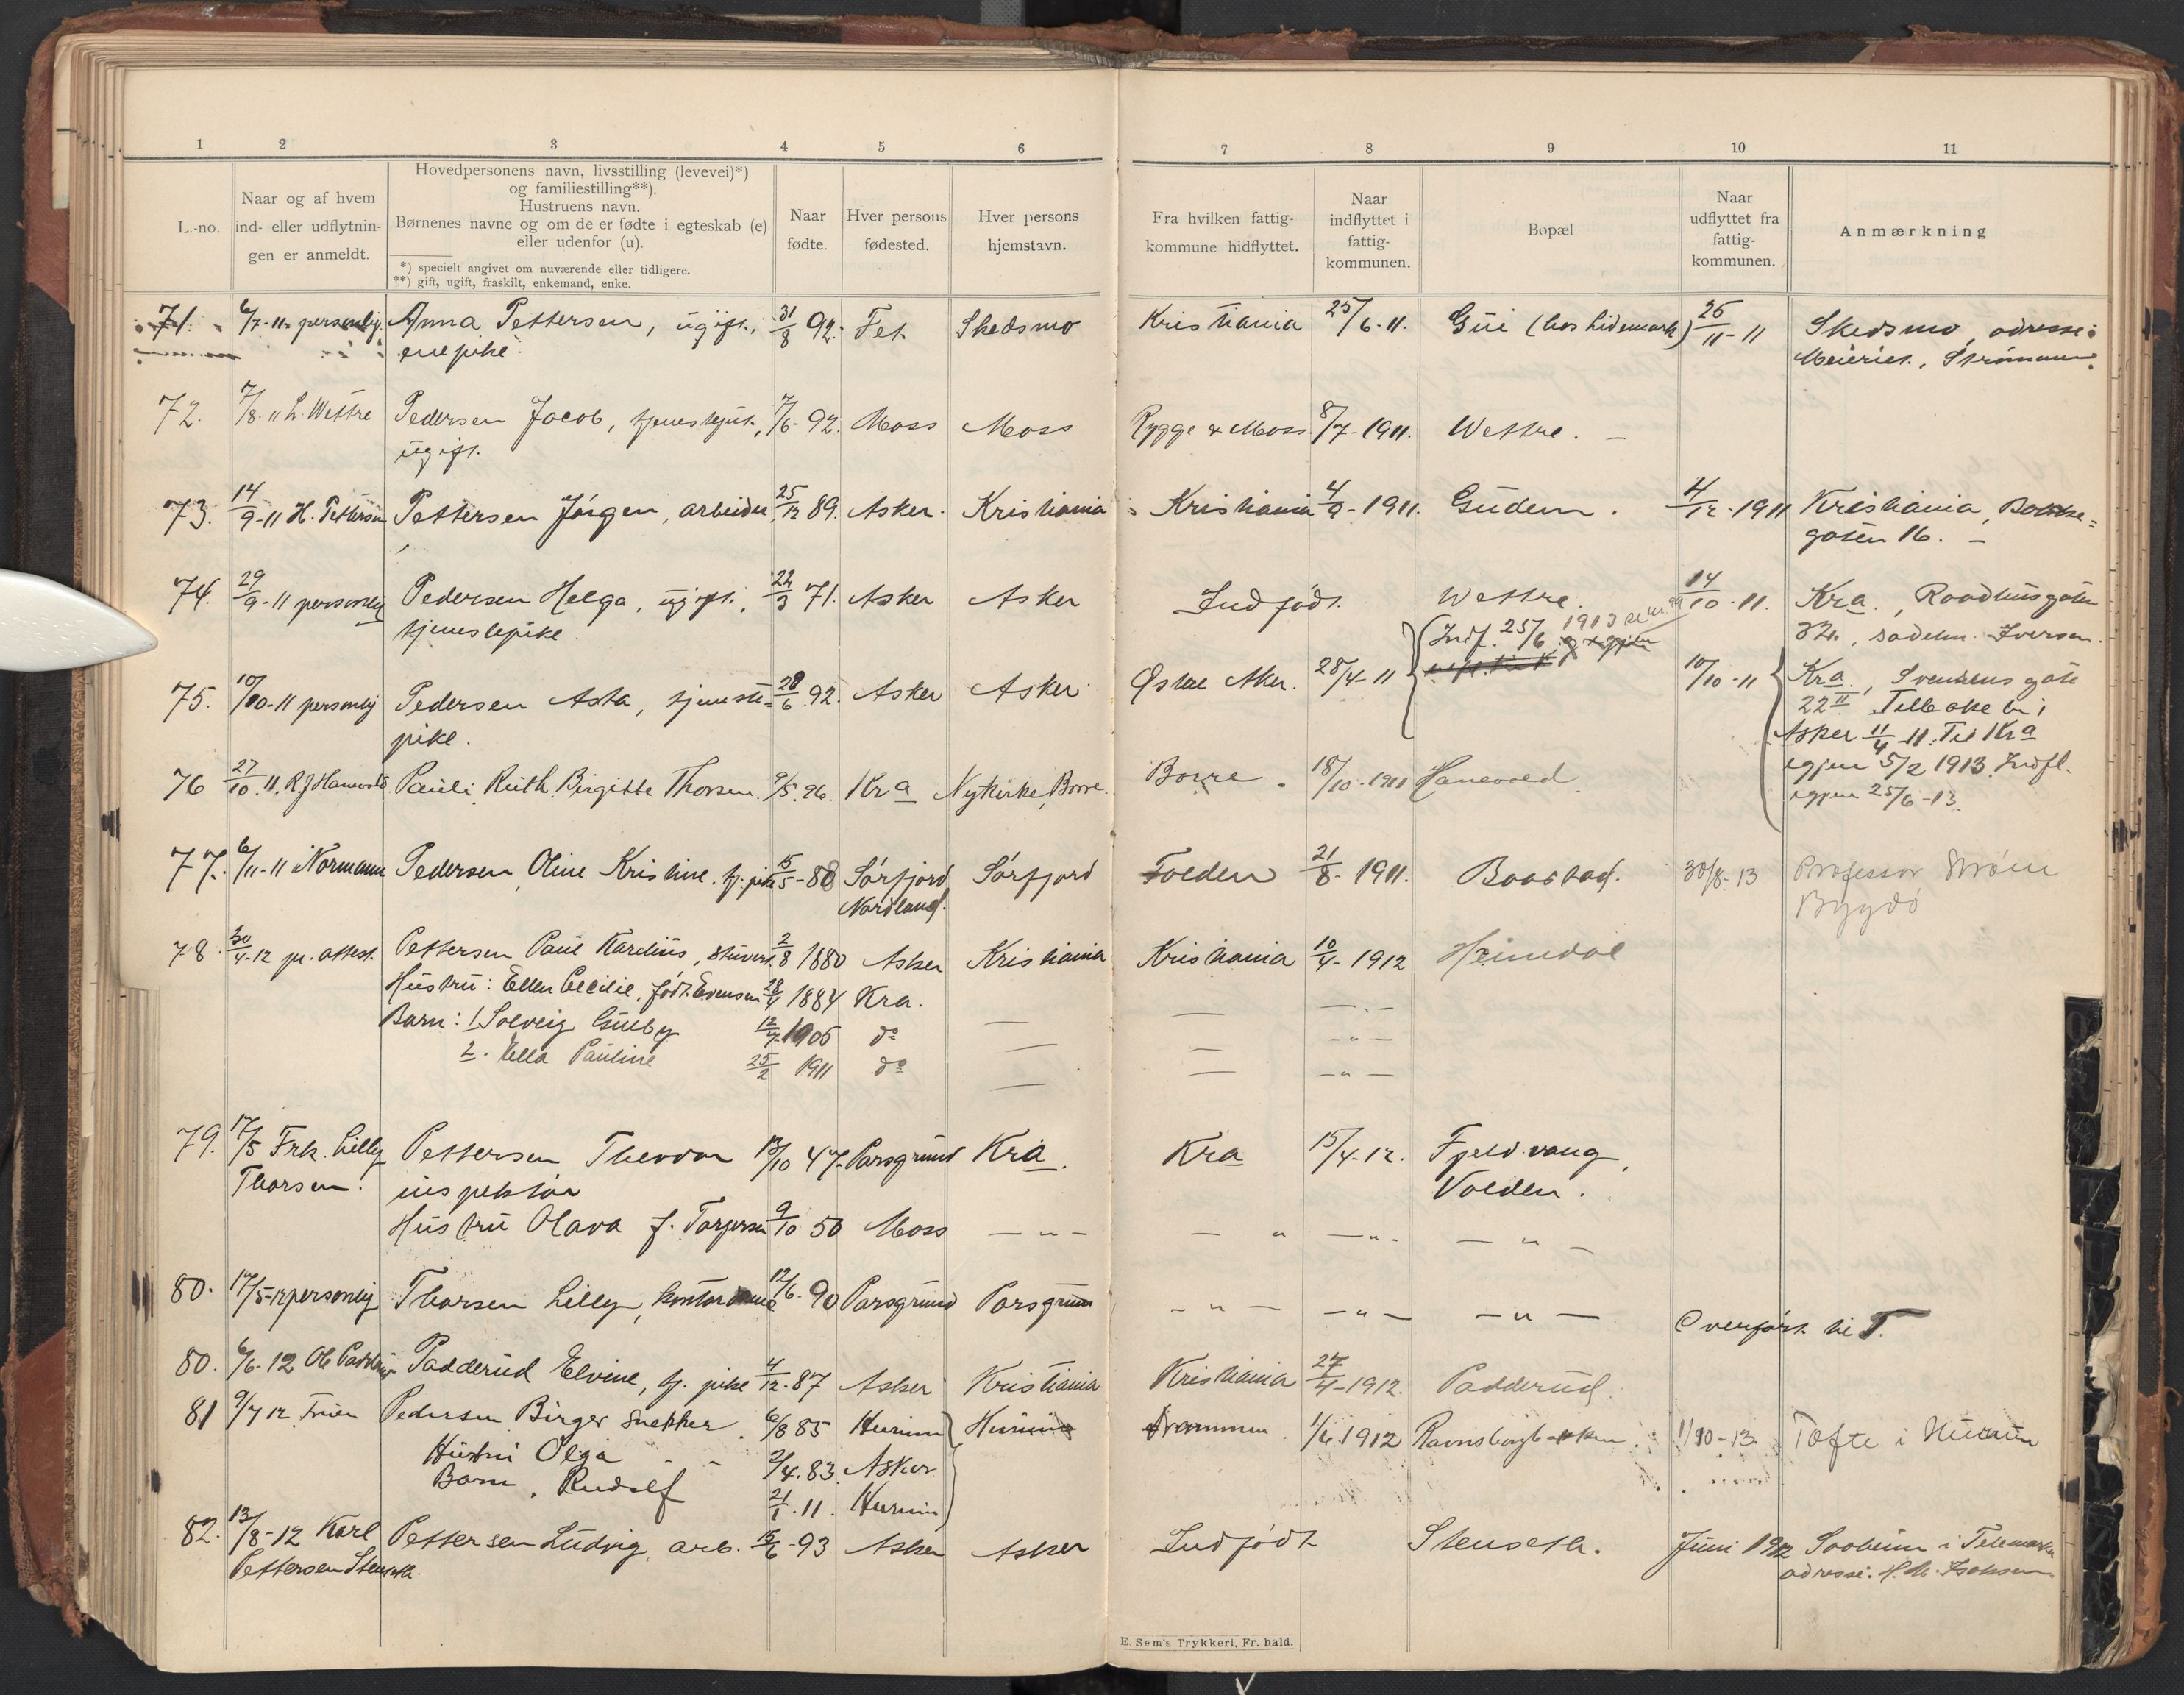 1 2 3 4 5 6 7 8 9 10 11
L.-no.
Naar og af hvem
ind- eller udflytnin-
gen er anmeldt.
Hovedpersonens navn, livsstilling (levevei)*)
og familiestilling**).
Hustruens navn.
Børnenes navne og om de er fødte i egteskab (e)
eller udenfor (u).
*) specielt angivet om nuværende eller tidligere.
**) gift, ugift, fraskilt, enkemand, enke.
Naar
fødte.
Hver persons
fødested.
Hver persons
hjemstavn.
Fra hvilken fattig-
kommune hidflyttet.
Naar
indflyttet i
fattig-
kommunen.
Bopæl
Naar
udflyttet fra
fattig-
kommunen.
Anmærkning
71. 6/7-11 personlig. Anna Pettersen, ugift, 31/8 92. Fet. Skedsmo Kristiania 25/6-11. Gui (hos Lidemark) 25/11-11 Skedsmo, adresse:
enepike. Meieriet, Strømmen.
72. 7/8-11 L. Wettre Pedersen Jacob, tjenestgut, 7/6-92. Moss Moss Rygge & Moss. 8/7-1911. Wettre. —
ugift.
73. 14/9-11 H. Pettersen Pettersen Jørgen, arbeider, 25/12 89. Asker. Kristiania Kristiania 4/9-1911. Gudem. 4/12-1911 Kristiania,
gaten 16. —
74. 29/9-11 personlig Pedersen Helga, ugift, 22/3 71. Asker Asker Indfødt. Wettre. 14/10-11. Kra., Raadhusgaten
tjenestepike. 32, sadelm. Iversen.
Indf. 25/6 1913
75. 10/10-11 personlig Pedersen Asta, tjeneste- 28/6 92. Asker Asker Østre Aker. 28/4-11 10/10-11 Kra., Svensens gate
pike. 22 II Tilbake til
Asker 11/4-11. Til Kra
76 27/10.11. R J Hanevold Pauli Ruth Birgitte Thorsen. 9/5.96. Kra Nykirke, Borre. Borre. 18/10-1911 Hanevold igjen 5/2 1913. Indfl.
igjen 25/6-13.
77. 6/11-11 Normann Pedersen Oline Kristine. tj. pike 15/5-88 Sørfjord Sørfjord Folden 21/8-1911. Baastad. 30/8-13 Professor Strøm
Nordland. Bygdø
78. 30/4-12 pr. attest. Pettersen Paul Kardius, stuvert. 2/8 1880 Asker Kristiania Kristiania 10/4-1912 Heimdal
Hustru: Ellen Cecilie, født Evensen 28/4 1884 Kra. — — —.—
Barn: 1. Solveig Gulby 12/7 1905 do — — —"—
2. Ella Pauline 25/2 1911 do — — —"—
79. 17/5 Frk. Lilly Pettersen Theodor 13/10 47. Porsgrund Kra. Kra 15/4-12. Fjeldvang,
Thorsen. inspektør Volden.
Hustru Olava f. Torgersen 9/10 50 Moss —"— — " —"— —"—
80. 17/5-12 personlig Thorsen Lilly, kontordame 12/6-90 Porsgrund Porsgrund —"— —"— —"— Overført til T.
80. 6/6-12 Ole Padderud Padderud Elvine, tj. pike 4/12-87 Asker Kristiania Kristiania 27/4-1912. Padderud
81 9/7 12. Fruen Pedersen Birger Snekker. 6/8 85 Hurum Hurum Drammen. 1/4 1912 1/10-13. Tofte i Hurum
Hustru Olga - - 2/4.83 Asker
Barn. Rudolf 21/1.11 Hurum
82. 13/8-12 Karl Pettersen Ludvig, arb. 15/6-93 Asker Asker Indfødt Stenseth. Juni 1912 Saaheim i Telemarken
Pettersen Stenseth. adresse: H. M. Isaksen.
E. Sem's Trykkeri, Fr. hald.